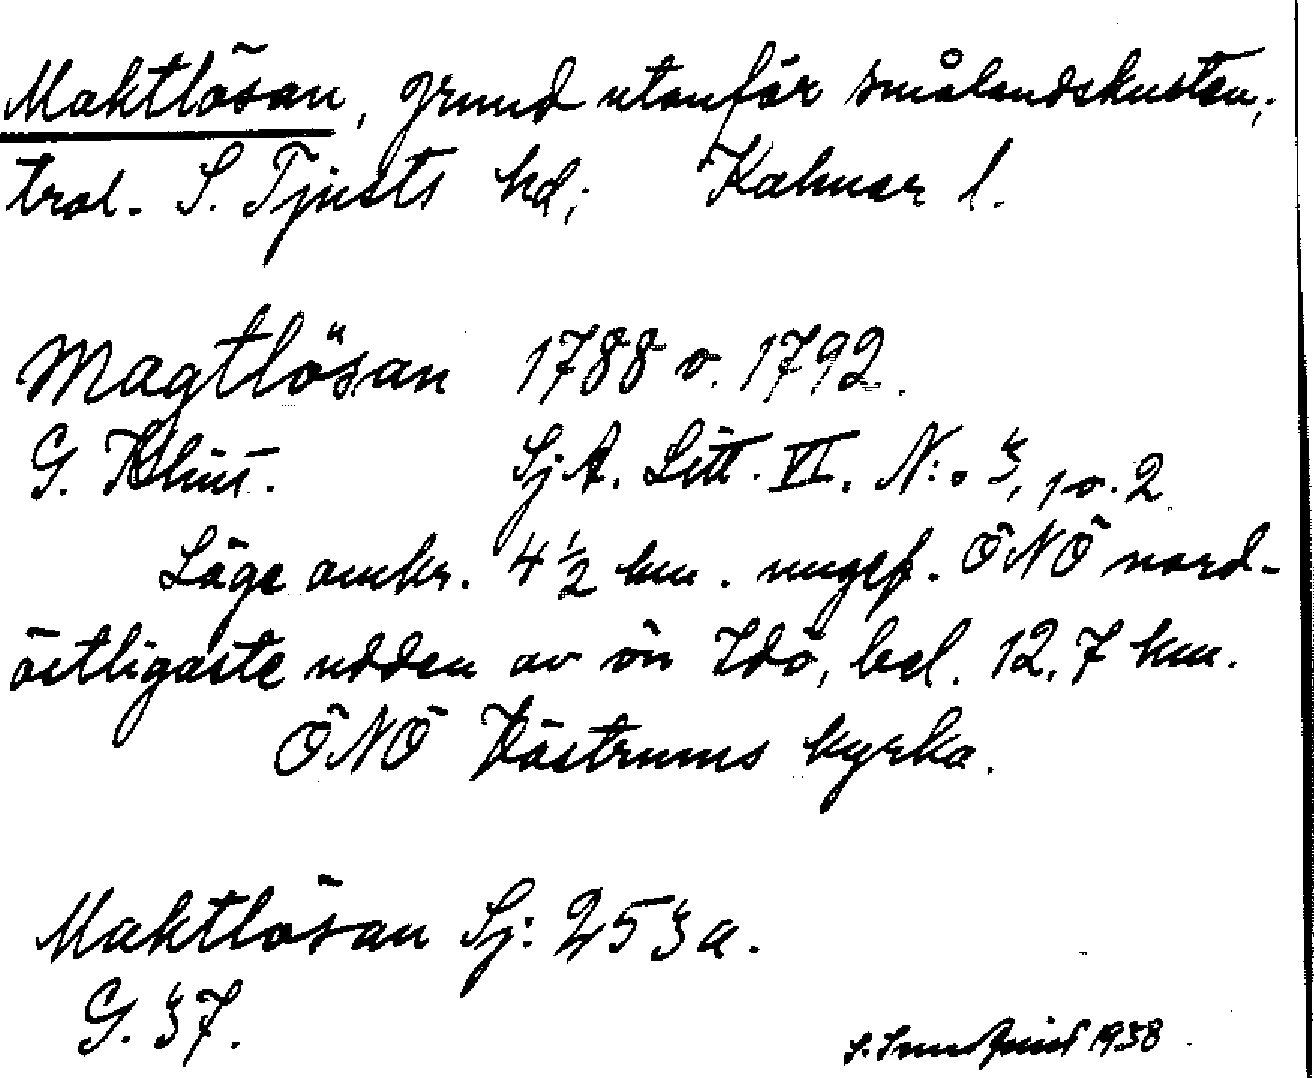 Maktlösan, grund utanför smålandskusten,
trol. S. Tjusts hd; Kalmar l.
Magtlösan 1788 o. 1792.
G. Klint. SjA. Litt. VI. N:o 3, 1 o. 2
Läge omkr. 4 1/2 km. ungef. ÖNÖ nord-
östligaste udden av ön Idö, bel. 12.7 km.
ÖNÖ Västrums kyrka.
Maktlösan Sj: 253a.
G. 37.
1938